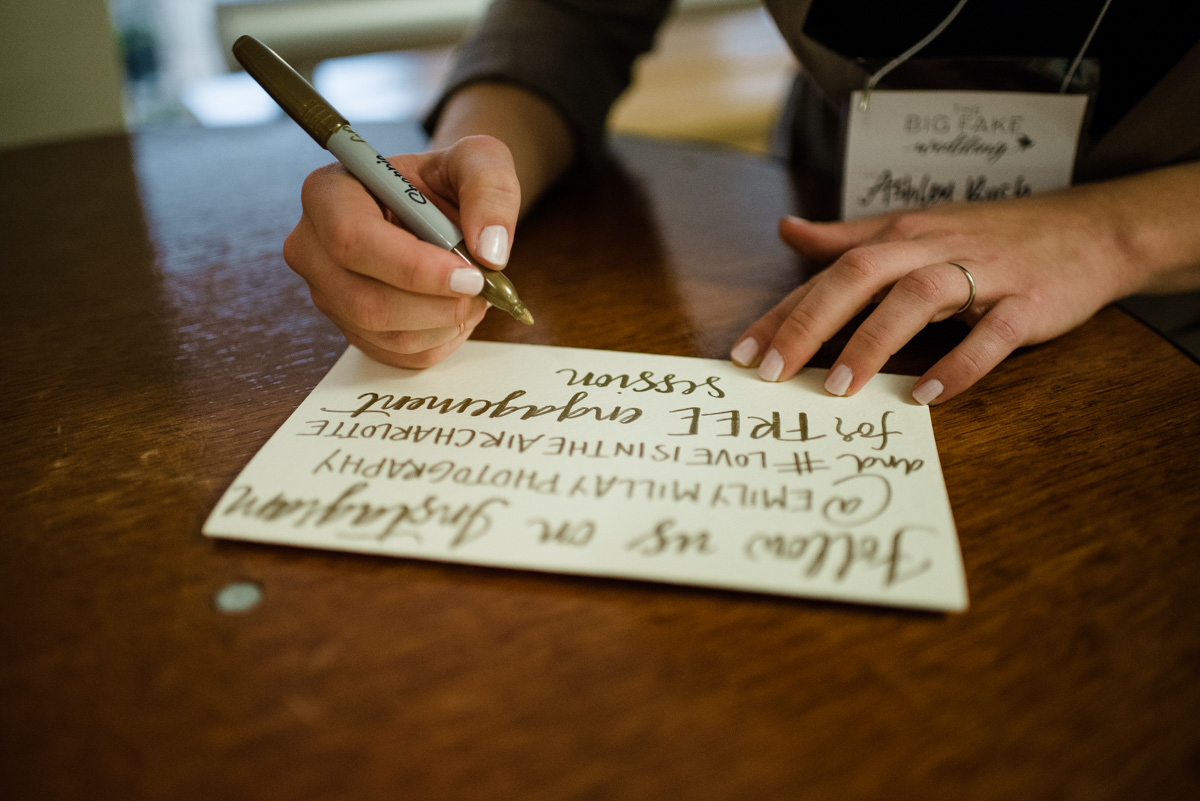 Sharpie
THE
BIG FAKE
wedding
Ashley
Follow us on Instagram
@EMILYMILLAYPHOTOGRAPHY
and #LOVEISINTHEAIRCHARLOTTE
for FREE engagement
session